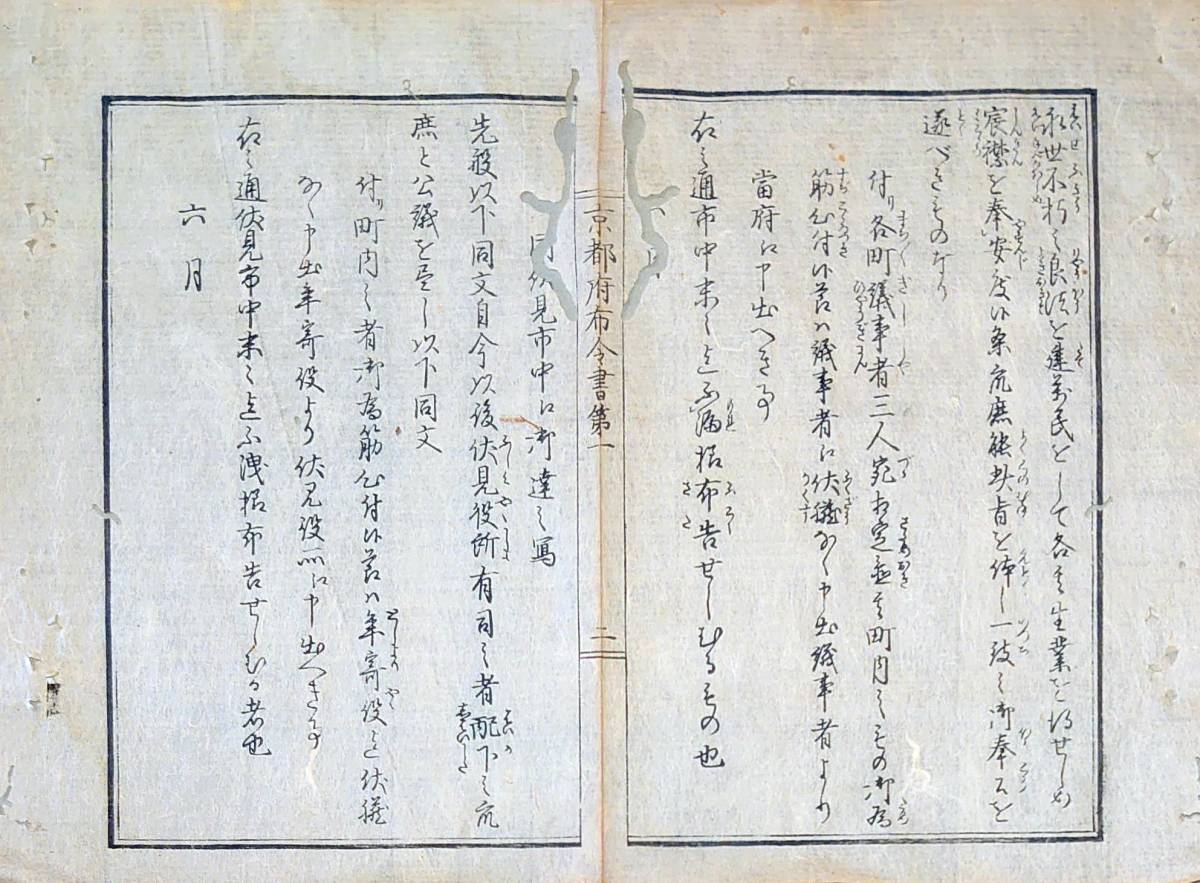 永世不朽之良法を建萬民をして各其生業を得せしめ
宸襟を奉安度候条衆庶能此旨を体し一致之御奉公を
遂べきものなり
付り各町議事者三人宛相定並其町内之もの御為
筋心付候節ハ議事者江伏議なく申出議事者より
當府江申出へき事
右之通市中末々迄不漏様布告せしむるもの也
京都府布令書第一
二
伏見市中江御達之写
先般以下同文自今以後伏見役所有司之者配下之衆
庶と公議を尽し以下同文
付り町内之者御為筋心付候節ハ年寄役迄伏議
なく申出年寄役より伏見役所江申出へき事
右之通伏見市中末々迄不洩様布告せしむる者也
六月